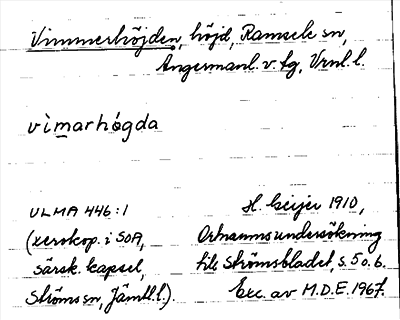 Vimmerhöjden, höjd, Ramsele sn,
Ångermanl. v. tg, Vrnl. l.
vimarhǫgda
ULMA 446:1
(xerokop. i SOA,
särsk. kapsel,
Ströms sn, Jämtl. l.).
H. Geijer 1910,
Ortnamnsundersökning
till Strömsbladet, s. 5 o. 6.
Exc. av M.D.E. 1967.